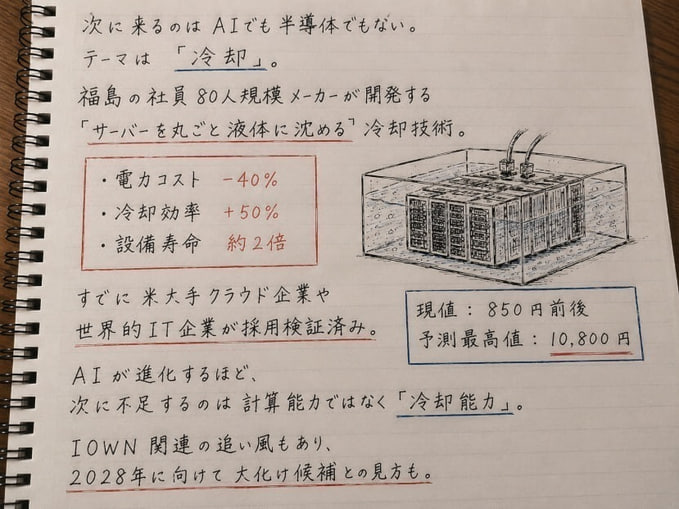 次に来るのは AIでも半導体でもない。
テーマは 「冷却」。
福島の社員80人規模メーカーが開発する
「サーバーを丸ごと液体に沈める」冷却技術。
・電力コスト －40%
・冷却効率 +50%
・設備寿命 約2倍
すでに米大手クラウド企業や
世界的IT企業が採用検証済み。
現値：850円前後
予測最高値：10,800円
AIが進化するほど、
次に不足するのは計算能力ではなく「冷却能力」。
IOWN関連の追い風もあり、
2028年に向けて大化け候補との見方も。